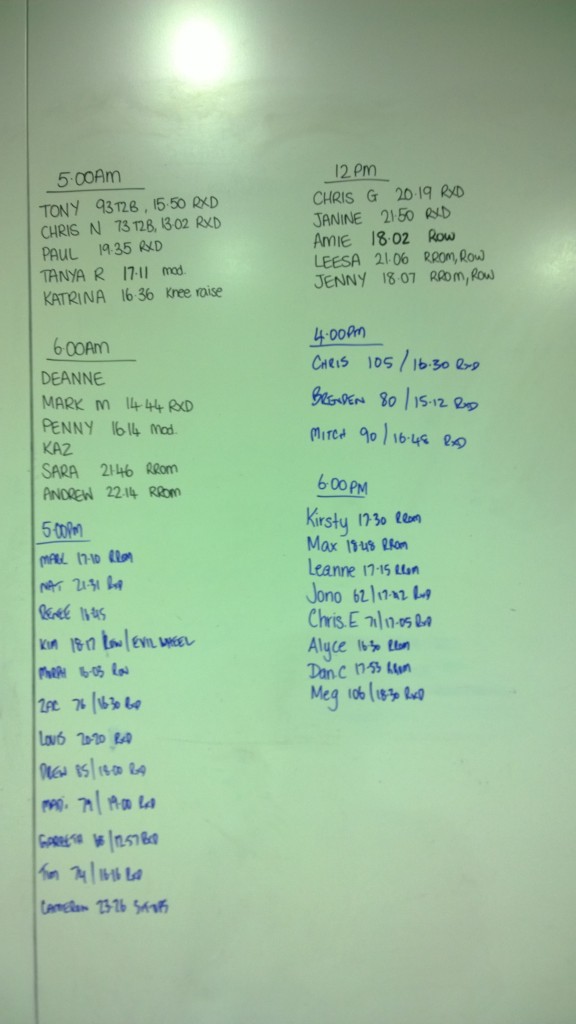 5.00AM
TONY 93T2B, 15.50 RXD
CHRIS N 73T2B, 13.02 RXD
PAUL 19.35 RXD
TANYA R 17.11 mod.
KATRINA 16.36 Knee raise
6.00AM
DEANNE
MARK M 14.44 RXD
PENNY 16.14 mod.
KAZ
SARA 21.46 RROM
ANDREW 22.14 RROM
5.00PM
MARK 17.10 RROM
NAT 21.31 RXD
RENEE 16.45
KIM 18.17 ROW/EVIL WHEEL
16.03 ROW
ZAC 76/16.30 RXD
LOUIS 20.20 RXD
DREW 85/18.00 RXD
MADI. 79/19.00 RXD
GARETH /17.57 RXD
TIM 74/16.16 RXD
CAMERON 23.26
12PM
CHRIS G 20.19 RXD
JANINE 21.50 RXD
AMIE 18.02 ROW
LEESA 21.06 RROM, ROW
JENNY 18.07 RROM, ROW
4.00PM
CHRIS 105/16.30 RXD
BRENDEN 80/15.12 RXD
MITCH 90/16.45 RXD
6.00PM
Kirsty 17.30 RROM
Max 18.48 RROM
Leanne 17.15 RROM
Jono 62/17.42 RXD
Chris.E 71/17.05 RXD
Alyce 16.30 RROM
Dan.C 17.53 RROM
Meg 106/18.30 RXD